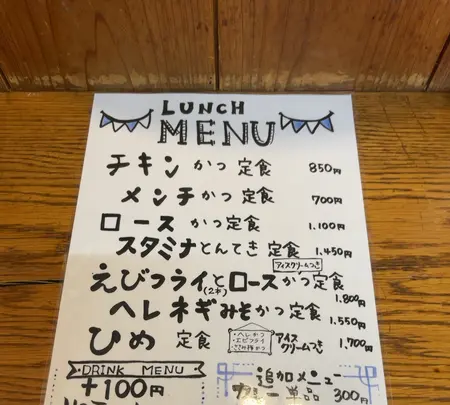 LUNCH
MENU
チキン かつ 定食 850円
メンチ かつ 定食 700円
ロース かつ定食 1.100円
スタミナ とんてき 定食 1.450円
アイスクリームつき
えびフライ(2本)とロースかつ定食 1.800円
ヘレネギみそかつ定食 1.550円
ひめ 定食 アイスクリームつき 1,700円
・ヘレかつ
・エビフライ
DRINK MENU
+100円
追加メニュー
単品 300円